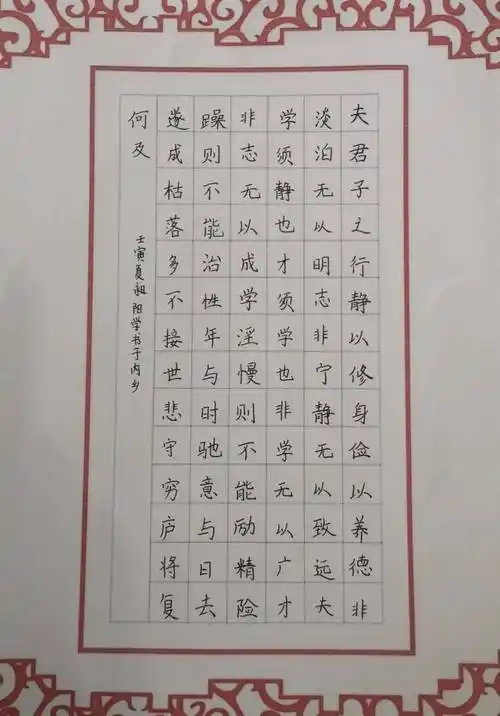 夫君子之行静以修身俭以养德非
淡泊无以明志非宁静无以致远夫
学须静也才须学也非学无以广才
非志无以成学淫慢则不能励精险
躁则不能治性年与时驰意与日去
遂成枯落多不接世悲守穷庐将复
何及
壬寅夏祖阳学书于内乡